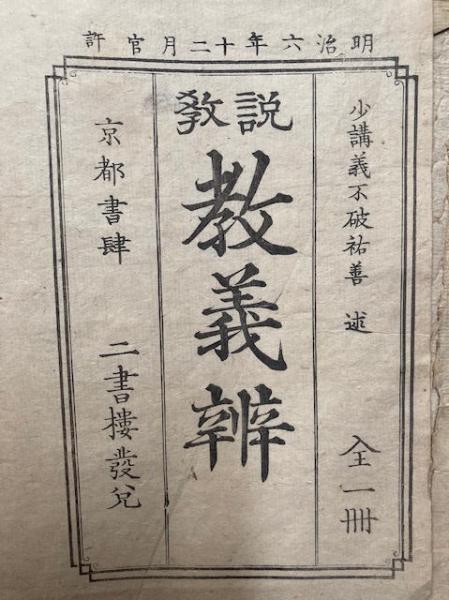 明治六年十二月官許
少講義不破祐善 述
全一冊
説教
教義辨
京都書肆
二書樓發兌